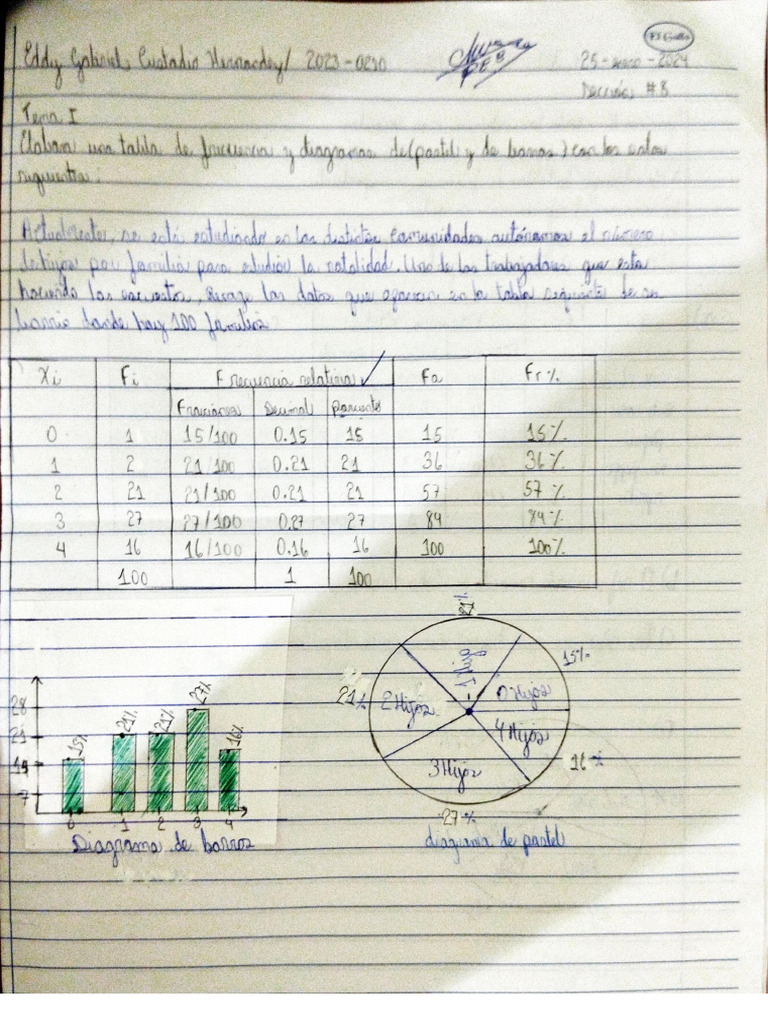 Eddy Gabriel Custodio Hernandez/ 2023-0230
25-enero-2024
Sección #8
Tema I
Elabora una tabla de frecuencia y diagramas de (pastel y de barras) con los datos
siguientes:
Actualmente, se está estudiando en las distintas comunidades autónomas el número
de hijos por familia para estudiar la natalidad. Uno de los trabajadores que esta
haciendo las encuestas, Recoge los datos que aparecen en la tabla siguiente de su
barrio donde hay 100 familias
Xi Fi Frecuencia relativa Fa Fr%
Fraciones Decimal Porciento
0 1 15/100 0.15 15 15 15%
1 2 21/100 0.21 21 36 36%
2 21 21/100 0.21 21 57 57%
3 27 27/100 0.27 27 84 84%
4 16 16/100 0.16 16 100 100%
100 1 100
28
21
14
7
15%
21%
21%
27%
16%
0 1 2 3 4
Diagrama de barras
21%
1 Hijo
15%
0 Hijos
21%
2 Hijos
4 Hijos
16%
3 Hijos
27%
diagrama de pastel